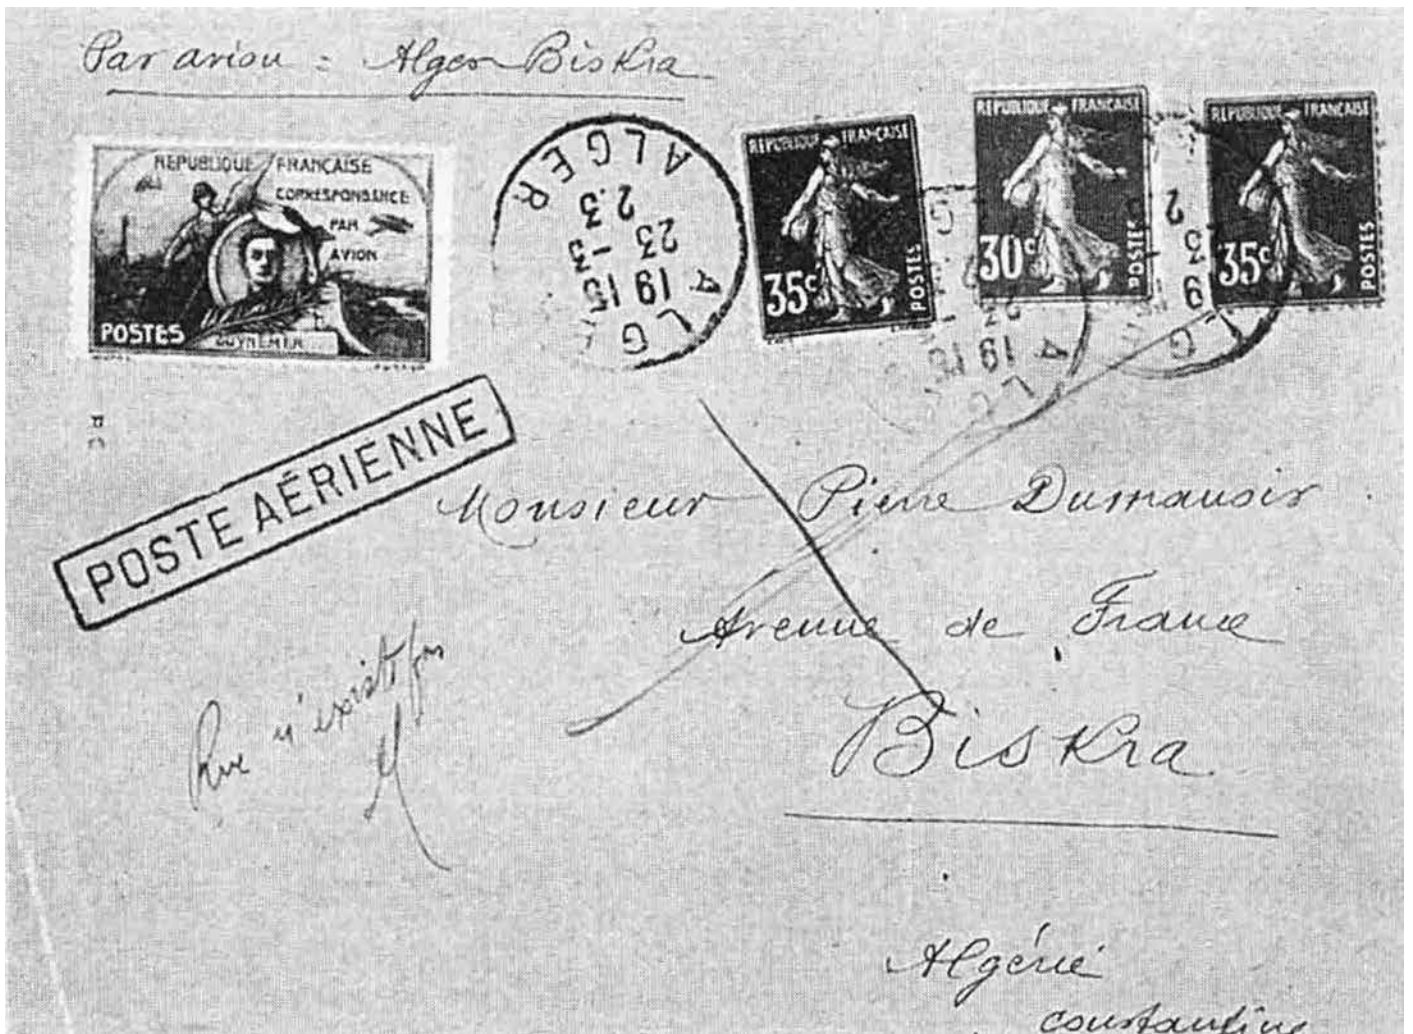 Par avion : Alger Biskra
REPUBLIQUE FRANÇAISE
CORRESPONDANCE
PAR
AVION
POSTES
GUYNEMER
ALGER
ALG
19 15
23 -3
23
REPUBLIQUE FRANÇAISE
35c
POSTES
REPUBLIQUE FRANÇAISE
30c
POSTES
REPUBLIQUE FRANÇAISE
35c
POSTES
POSTE AÉRIENNE
Monsieur Pierre Dumanoir
Avenue de France
Biskra
Rue n'existe pas
Algérie